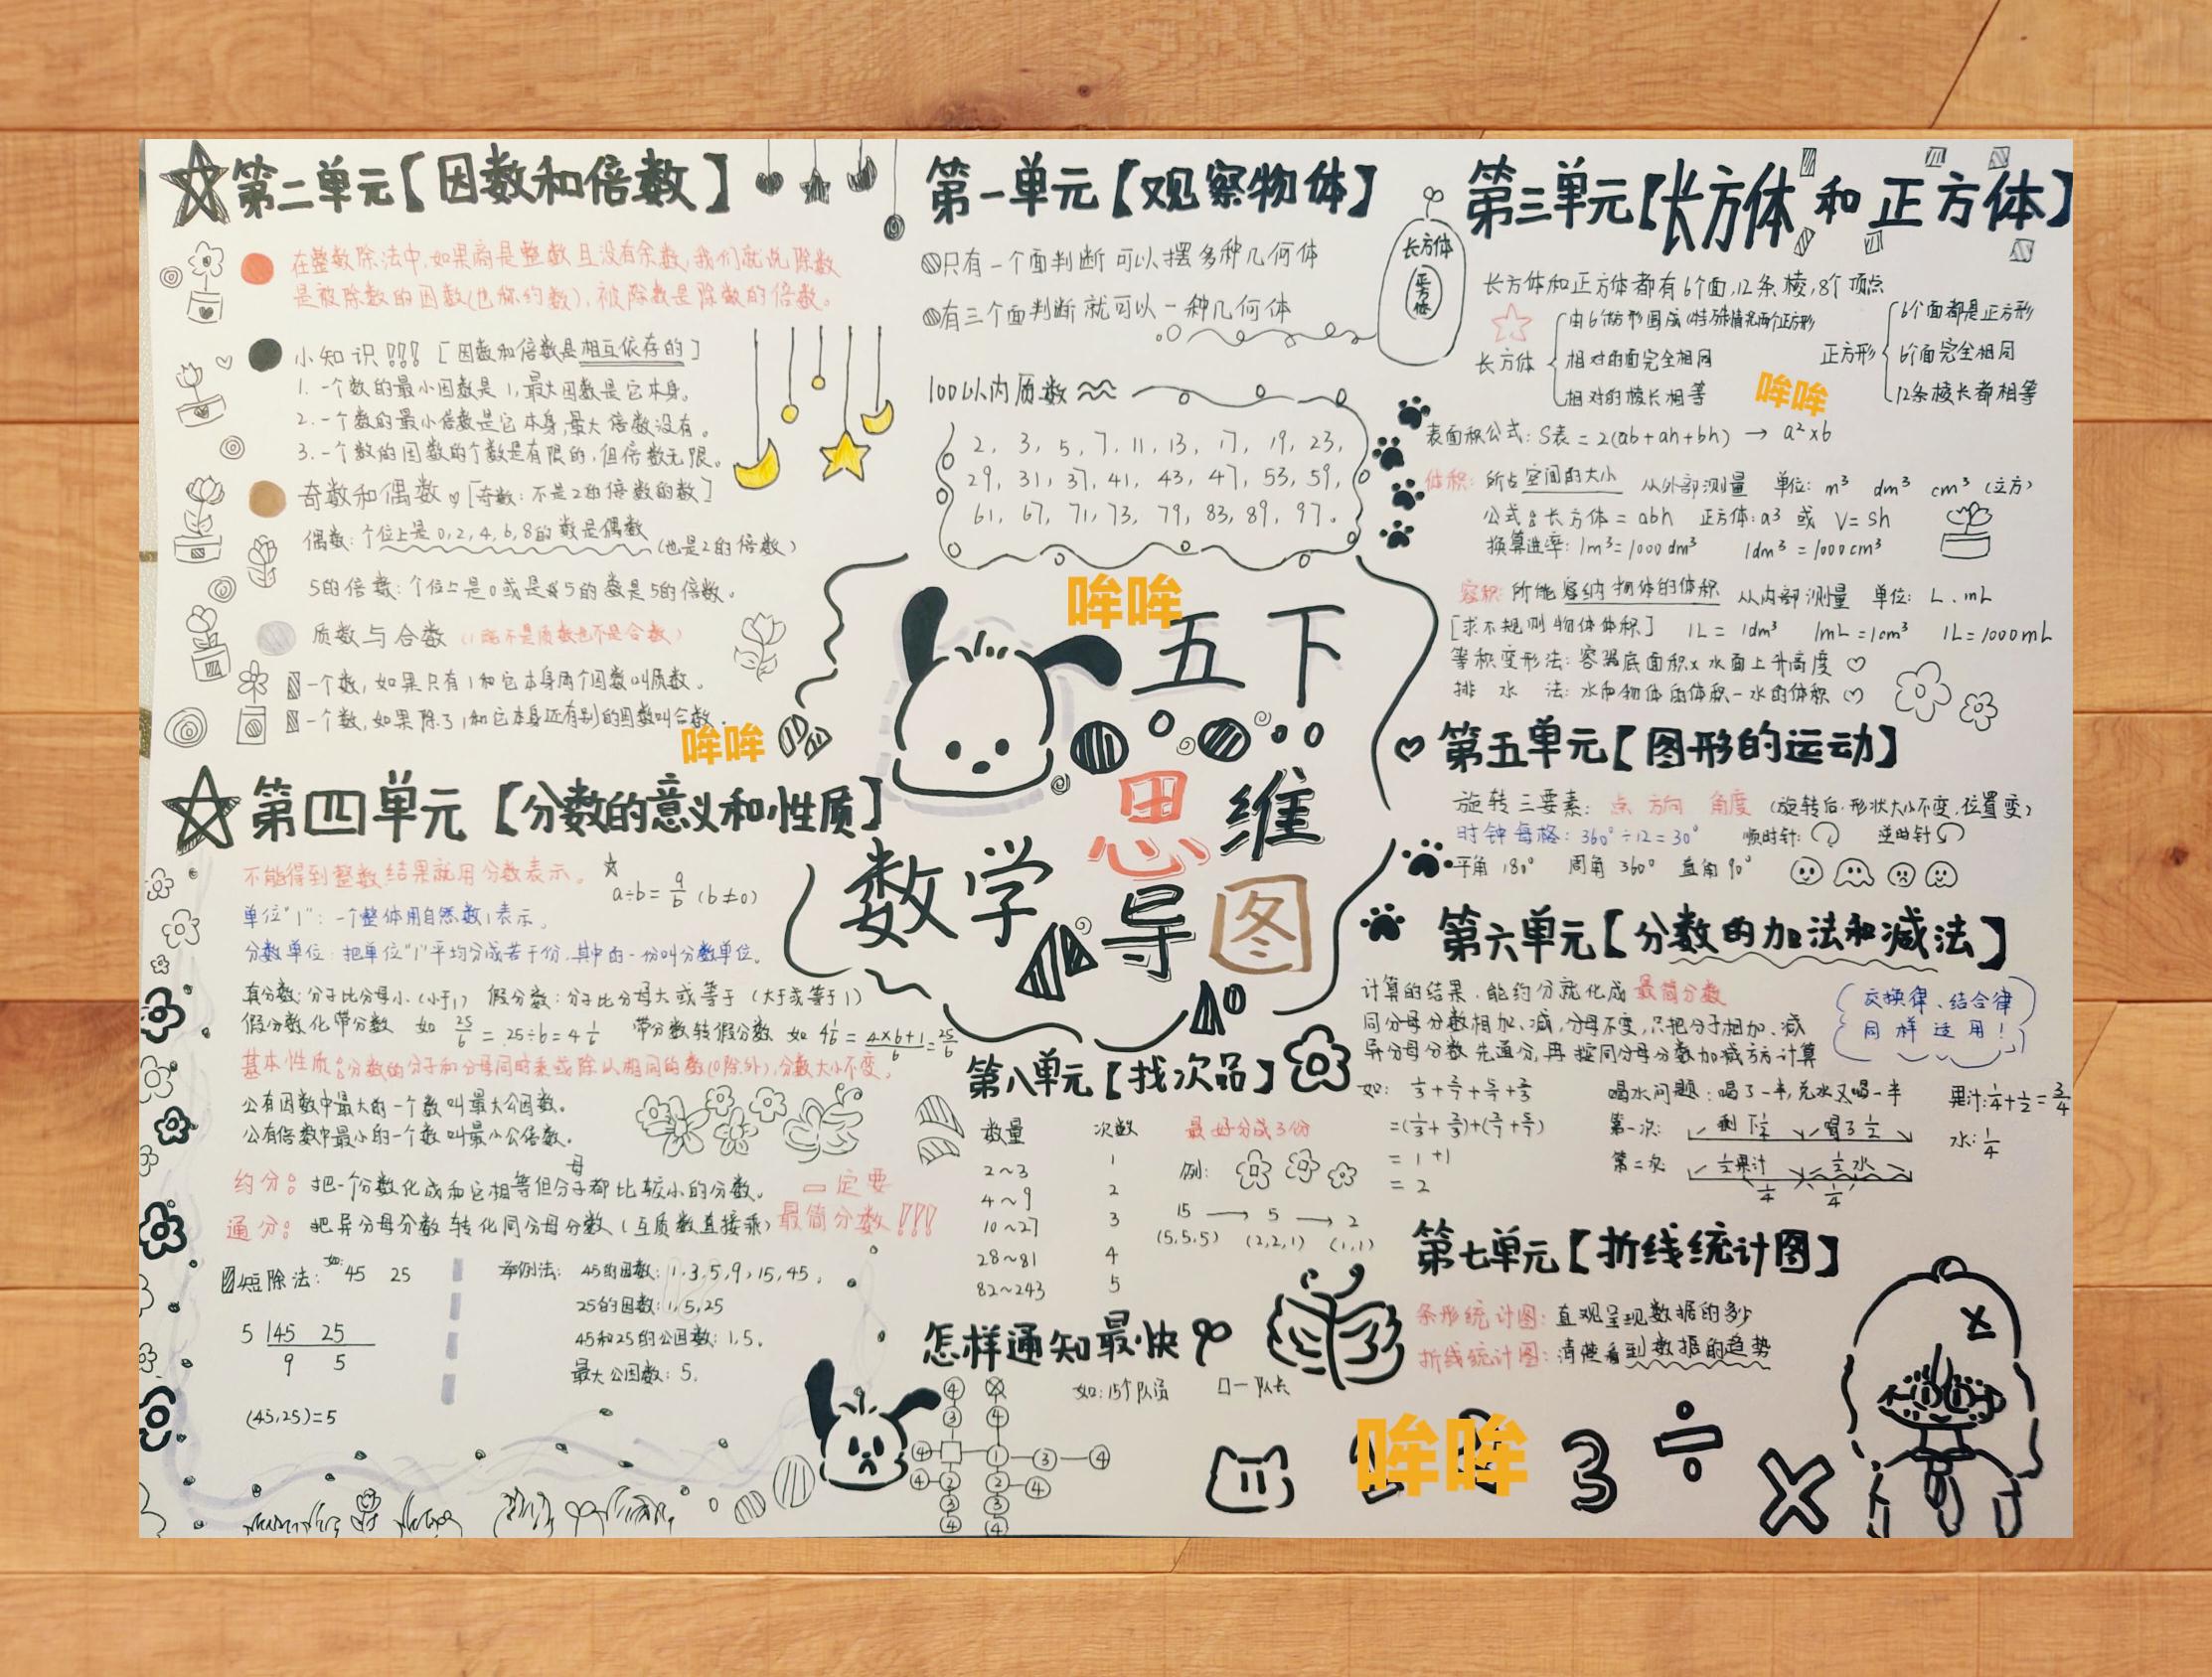 第二单元【因数和倍数】
在整数除法中,如果商是整数且没有余数,我们就说除数
是被除数的因数(也称约数),被除数是除数的倍数。
小知识!!! [因数和倍数是相互依存的]
1. 一个数的最小因数是1,最大因数是它本身。
2. 一个数的最小倍数是它本身,最大倍数没有。
3. 一个数的因数的个数是有限的,但倍数无限。
奇数和偶数 [奇数:不是2的倍数的数]
偶数:个位上是0,2,4,6,8的数是偶数(也是2的倍数)
5的倍数:个位上是0或是5的数是5的倍数。
质数与合数(1既不是质数也不是合数)
一个数,如果只有1和它本身两个因数叫质数。
一个数,如果除了1和它本身还有别的因数叫合数。
哞哞
第一单元【观察物体】
只有一个面判断可以摆多种几何体
有三个面判断就可以一种几何体
100以内质数
2, 3, 5, 7, 11, 13, 17, 19, 23,
29, 31, 37, 41, 43, 47, 53, 59,
61, 67, 71, 73, 79, 83, 89, 97.
哞哞
五下
数学思维导图
第三单元【长方体和正方体】
长方体
正方体
长方体和正方体都有6个面,12条棱,8个顶点
长方体
由6个长方形围成(特殊情况两个正方形
相对的面完全相同
相对的棱长相等
正方形
6个面都是正方形
6个面完全相同
12条棱长都相等
哞哞
表面积公式:S表=2(ab+ah+bh) → a²×6
体积:所占空间的大小 从外部测量 单位: m³ dm³ cm³ (立方)
公式:长方体=abh 正方体:a³ 或 V=Sh
换算进率:1m³=1000dm³ 1dm³=1000cm³
容积:所能容纳物体的体积 从内部测量 单位: L、mL
[求不规则物体体积] 1L=1dm³ 1mL=1cm³ 1L=1000mL
等积变形法:容器底面积×水面上升高度
排水法:水和物体的体积-水的体积
第四单元【分数的意义和性质】
不能得到整数结果就用分数表示。 a÷b=a/b (b≠0)
单位"1":一个整体用自然数1表示。
分数单位:把单位"1"平均分成若干份,其中的一份叫分数单位。
真分数:分子比分母小(小于1) 假分数:分子比分母大或等于(大于或等于1)
假分数化带分数 如 25/6=25÷6=4 1/6 带分数转假分数 如 4 1/6=4×6+1/6=25/6
基本性质:分数的分子和分母同时乘或除以相同的数(0除外),分数大小不变。
公有因数中最大的一个数叫最大公因数。
公有倍数中最小的一个数叫最小公倍数。
约分:把一个分数化成和它相等但分子母都比较小的分数。
通分:把异分母分数转化同分母分数(互质数直接乘)
一定要
最简分数!!!
短除法: 如:45 25
5 45 25
9 5
(45,25)=5
举例法: 45的因数:1,3,5,9,15,45,
25的因数:1,5,25
45和25的公因数:1,5,
最大公因数:5,
第五单元【图形的运动】
旋转三要素: 点 方向 角度 (旋转后,形状大小不变,位置变)
时钟每格:360°÷12=30° 顺时针: 逆时针
平角180° 周角360° 直角90°
第六单元【分数的加法和减法】
计算的结果,能约分就化成最简分数
同分母分数相加、减,分母不变,只把分子相加、减
异分母分数先通分,再按同分母分数加减方法计算
交换律、结合律
同样适用!
= 1+1
= 2
喝水问题:喝了一半,兑水又喝一半
第一次: 剩1/2 喝了1/2
第二次: 1/2果汁 1/2水
1/4 1/4
果汁:1/4+1/2=3/4
水:1/4
第八单元【找次品】
数量 次数
2~3 1
4~9 2
10~27 3
28~81 4
82~243 5
最好分成3份
例:
15 → 5 → 2
(5,5,5) (2,2,1) (1,1)
怎样通知最快
如:15个队员 □—队长
第七单元【折线统计图】
条形统计图:直观呈现数据的多少
折线统计图:清楚看到数据的趋势
哞哞
3 ÷ ×